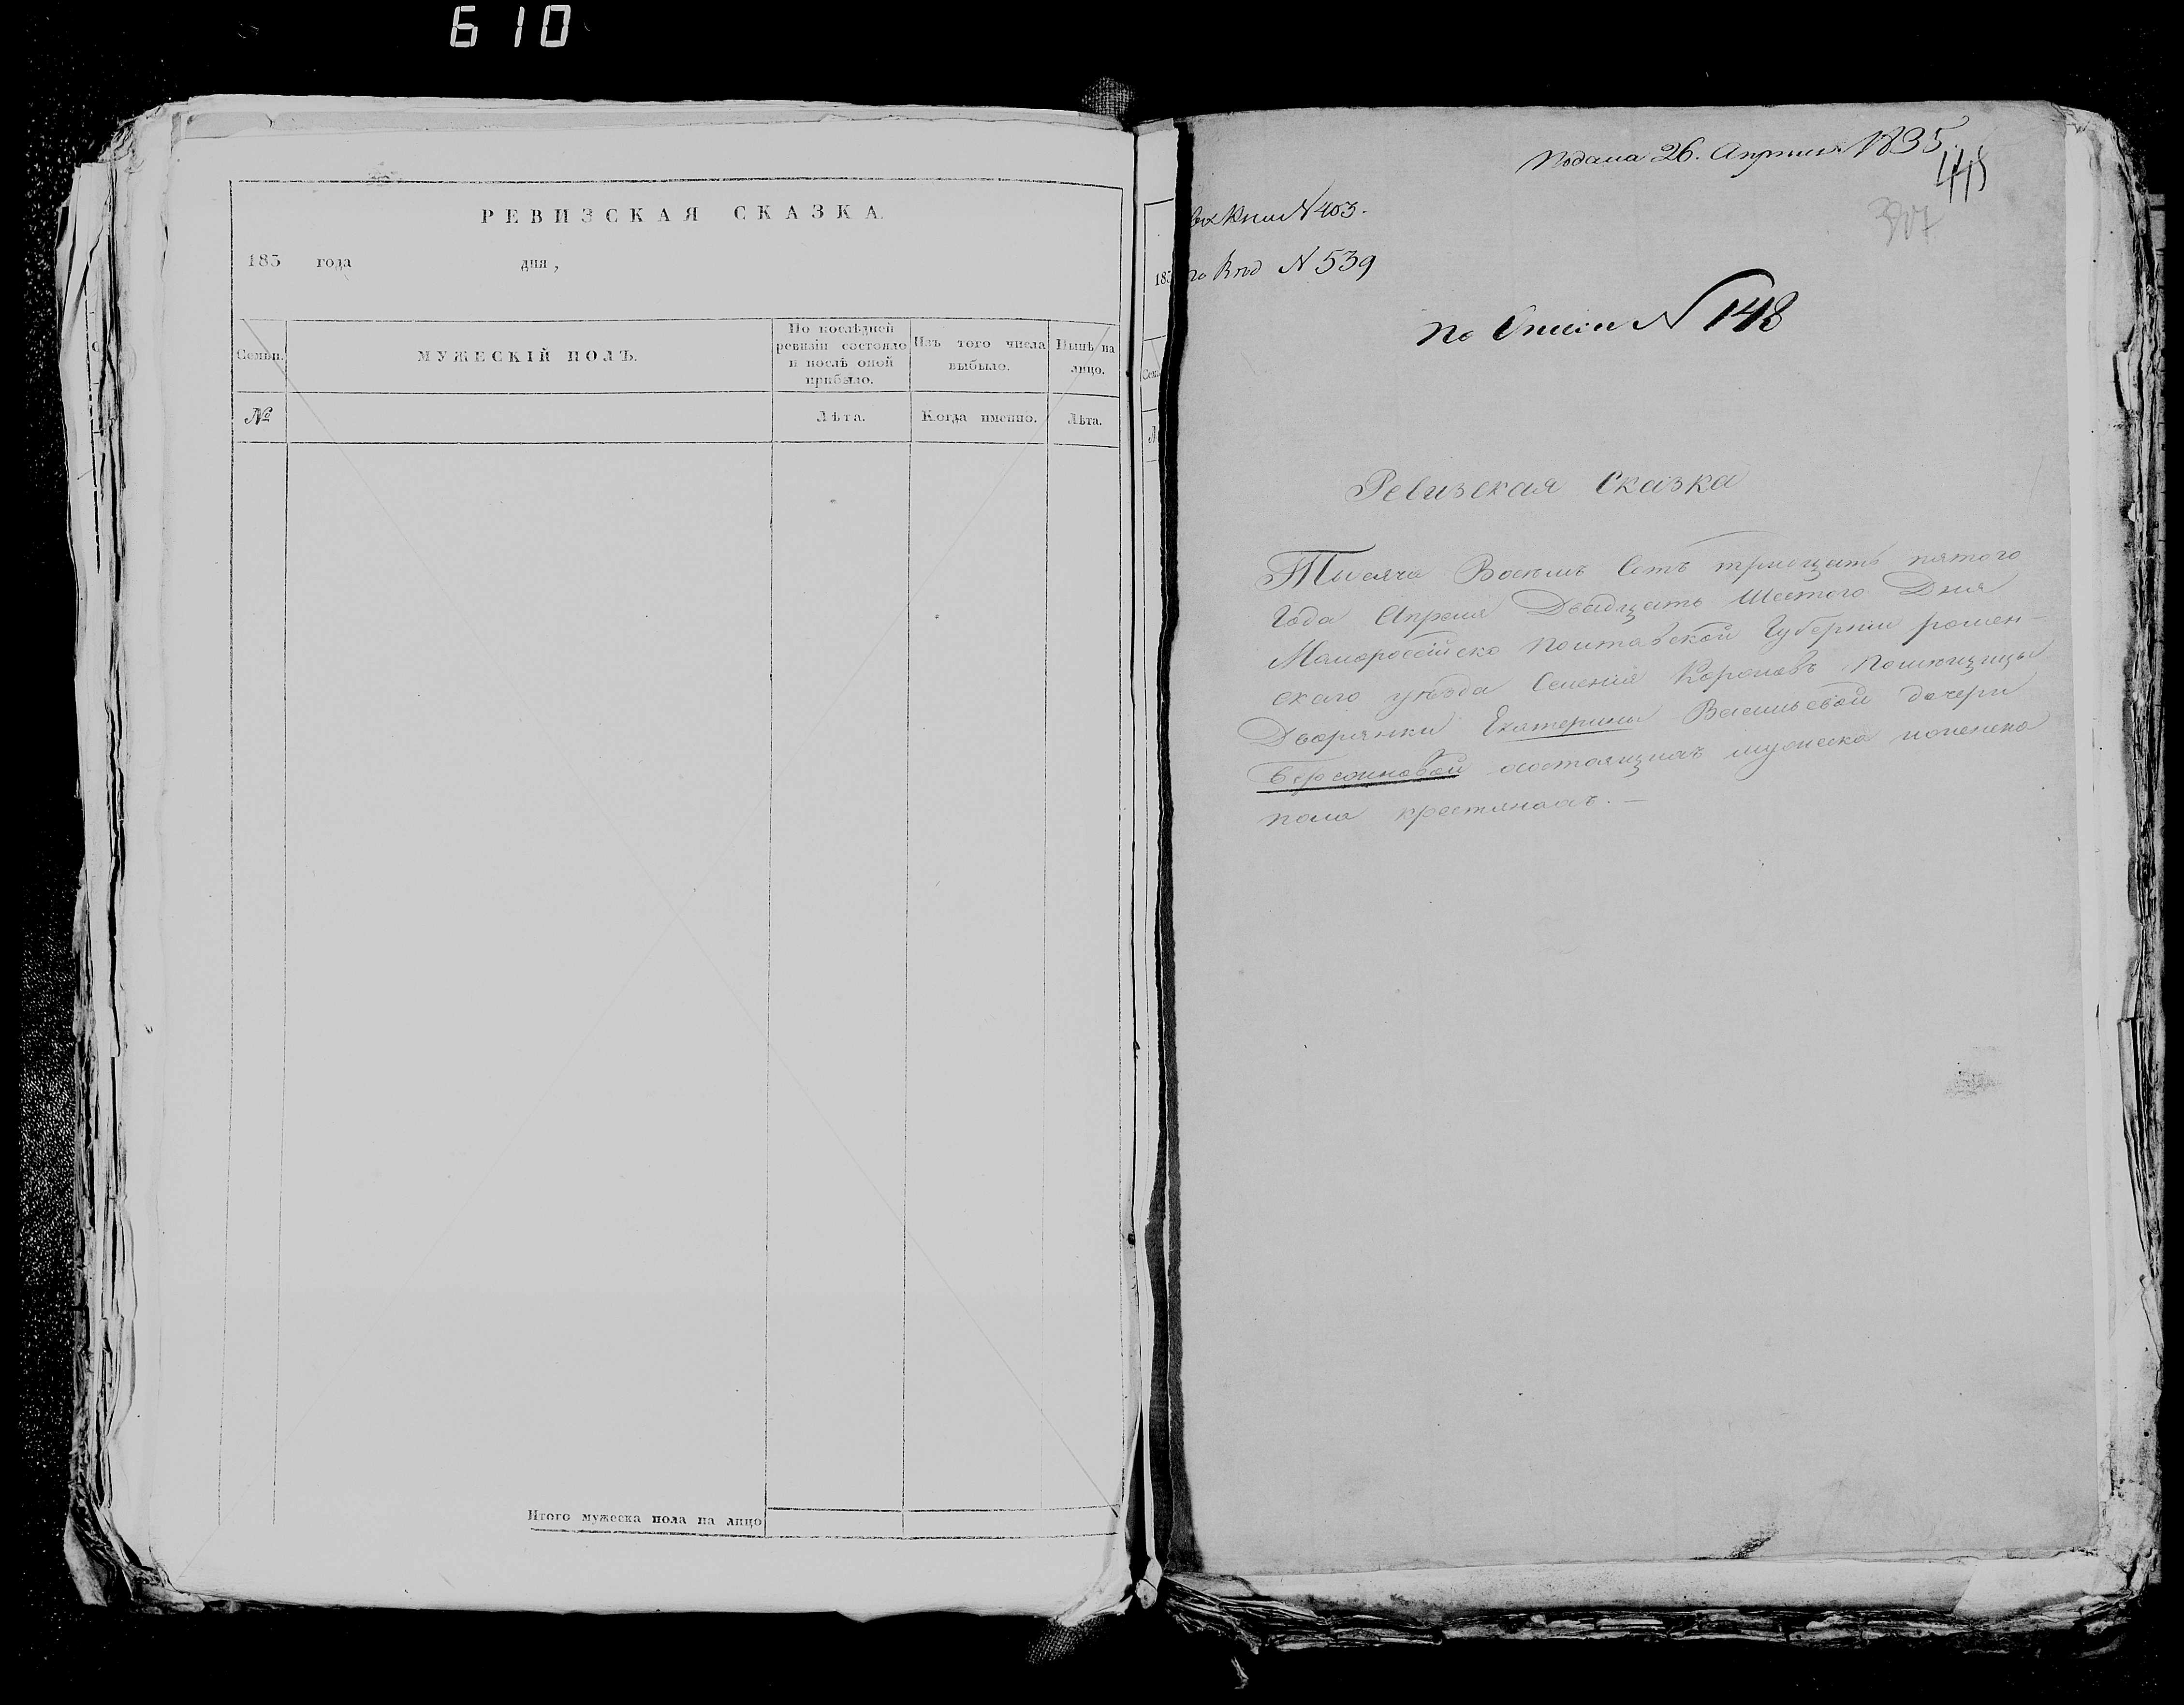 610
РЕВИЗСКАЯ СКАЗКА.
183 года дня,
Семьи.
МУЖЕСКІЙ ПОЛЪ.
По послѣдней
ревизіи состояло
и послѣ оной
прибыло.
Изъ того числа
выбыло.
Нынѣ на
лицо.
№
Лѣта.
Когда именно.
Лѣта.
Итого мужеска пола на лицо
183
Подана 26. Апреля 1835.
N 403.
N 539
307
По Описи N 148
Ревизская Сказка
Тысяча Восемь Сотъ тридцать пятого
Года Апреля Двадцать Шестого Дня
Малоросійско Полтавской Губерніи ромен-
скаго уезда Селенія Помещицы
Дворянки Екатерины Васильевой дочери
состоящихъ мужеска
пола крестянахъ. —